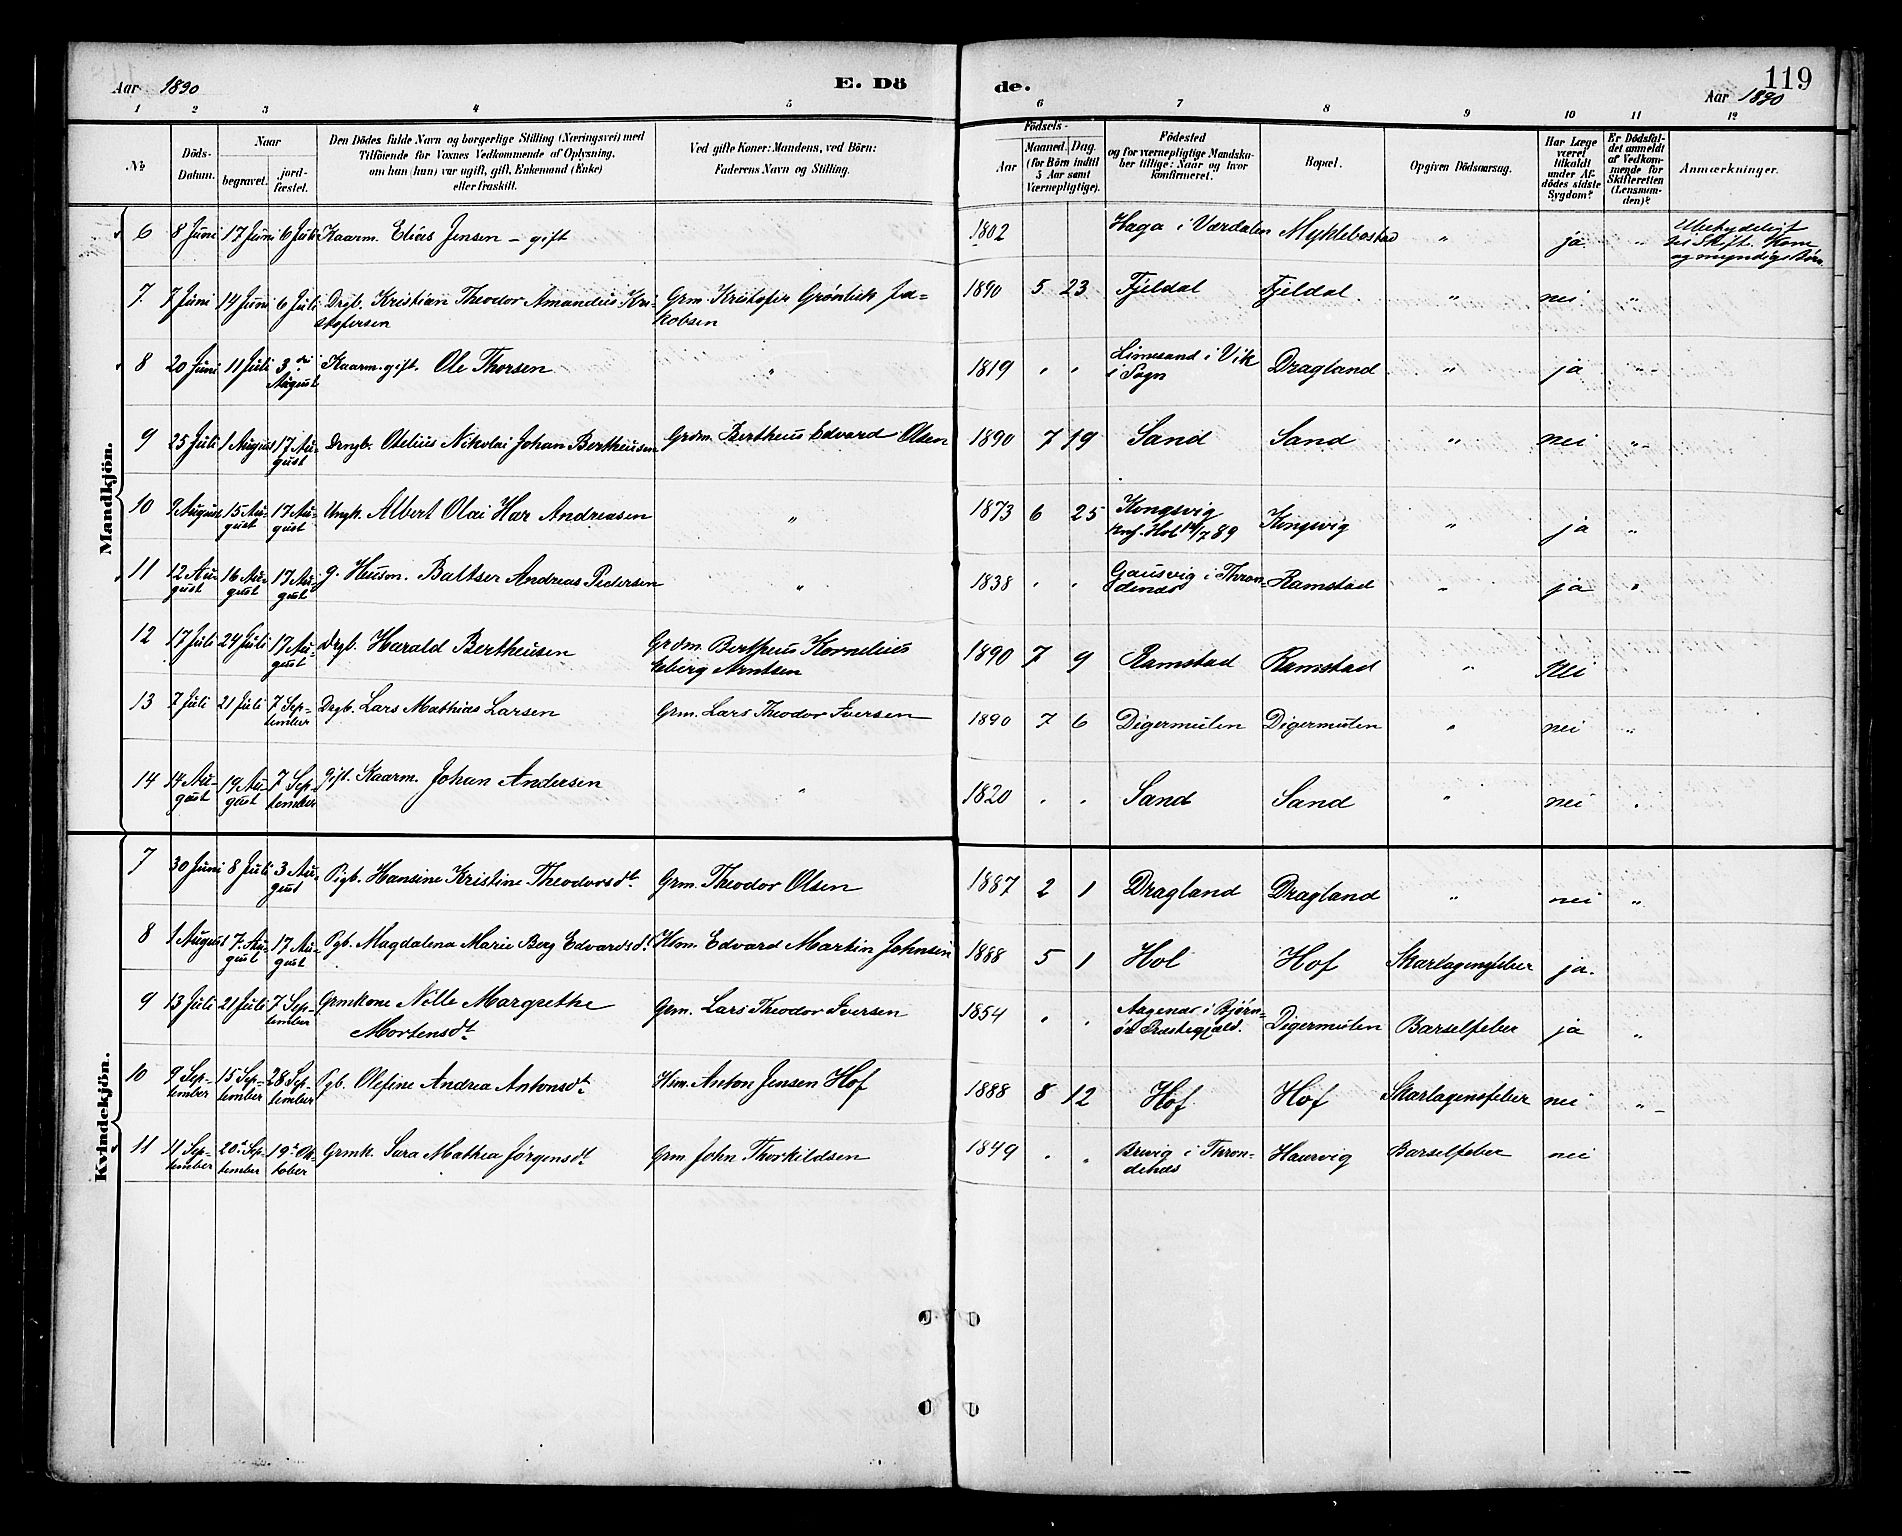 Aar 1890
E. Dö
de.
119
Aar 1890
1 2 3 4 5 6 7 8 9 10 11 12
№
Döds-
Datum.
Naar
begravet.
jord-
fæstet.
Den Dödes fulde Navn og borgerlige Stilling (Næringsvei) med
Tilföiende for Voxnes Vedkommende af Oplysning,
om han (hun) var ugift, gift, Enkemand (Enke)
eller fraskilt.
Ved gifte Koner: Mandens, ved Börn:
Faderens Navn og Stilling.
Födsels-
Aar
Maaned. Dag.
(for Börn indtil
5 Aar samt
Værnepligtige).
Födested
og for værnepligtige Mandska-
ber tillige: Naar og hvor
konfirmeret.
Bopæl.
Opgiven Dödsaarsag.
Har Læge
været
tilkaldt
under Af-
dödes sidste
Sygdom?
Er Dödsfal-
det anmeldt
af Vedkom-
mende for
Skifteretten
(Lensman-
den)?
Anmærkninger.
Mandkjön.
6 8 Juni 17 Juni 6 Juli Kaarm. Elias Jensen - gift 1802 Haga i Værdalen Myklebostad " ja "
Ubetydeligt
Skift. Kone
og myndige Börn
7. 7 Juni 14 Juni 6 Juli Drgb. Kristian Theodor Amandus Kri-
stofersen
Grm. Kristofer Grønbek Ja-
kobsen
1890 5 23 Fjeldal Fjeldal " nei "
8 20 Juni 11 Juli 3di August Kaarm. gift. Ole Thorsen " 1819 " " Limesand i Vik
i Sogn
Dragland " ja "
9 25 Juli 1 August 17 Au-
gust
Drngb. Otelius Nikolai Johan Bertheusen Grdm. Bertheus Edvard Olsen 1890 7 19 Sand Sand " nei "
10 9 August 15 Au-
gust
17 Au-
gust
Ungk. Albert Olai Har Andreasen " 1873 6 25 Kongsvig
konf. Hol 14/7 89
Kongsvig " ja "
11 12 Au-
gust
16 Au-
gust
17 Au-
gust
g. Husm. Baltser Andreas Pedersen " 1838 " " Gausvig i Thron-
denæs
Ramstad " ja "
12 17 Juli 24 Juli 17 Au-
gust
Drgb. Harald Bertheusen Grdm. Bertheus Kornelius
Eberg Arntsen
1890 7 9 Ramstad Ramstad " Nei
13 7 Juli 21 Juli 7 Sep-
tember
Drgb. Lars Mathias Larsen Grm. Lars Theodor Iversen 1890 7 6 Digermulen Digermulen " nei "
14 14 Au-
gust
19 Au-
gust
7 Sep-
tember
Gift. Kaarm. Johan Andersen " 1820 " " Sand Sand " nei "
Kvindekjön.
7 30 Juni 8 Juli 3 Au-
gust
Pigb. Hansine Kristine Theodorsdt. Grm. Theodor Olsen 1887 2 1 Dragland Dragland " nei "
8 1 August 7. Au-
gust
17 Au-
gust
Pgb. Magdalena Marie Berg Edvardsdt. Hsm. Edvard Martin Johnsen 1888 5 1 Hol Hof Skarlagensfeber ja.
9 13 Juli 21 Juli 7 Sep-
tember
Grmkone Nille Margrethe
Mortensdt.
Grm. Lars Theodor Iversen 1854 " " Aagenæs i Bjørn-
ö Præstegjæld.
Digermulen Barselfeber ja "
10 9 Sep-
tember
15 Sep-
tember
28 Sep-
tember
Pgb. Olefine Andrea Antonsdt. Hsm. Anton Jensen Hof 1888 8 12 Hof Hof Skarlagensfeber nei "
11 11 Sep-
tember
20 Sep-
tember
19 Ok-
tober
Grmk. Sara Mathea Jørgensdt. Grm John Thorkildsen 1849 " " Brevig i Thron-
denæs
Haurvig Barselfeber nei